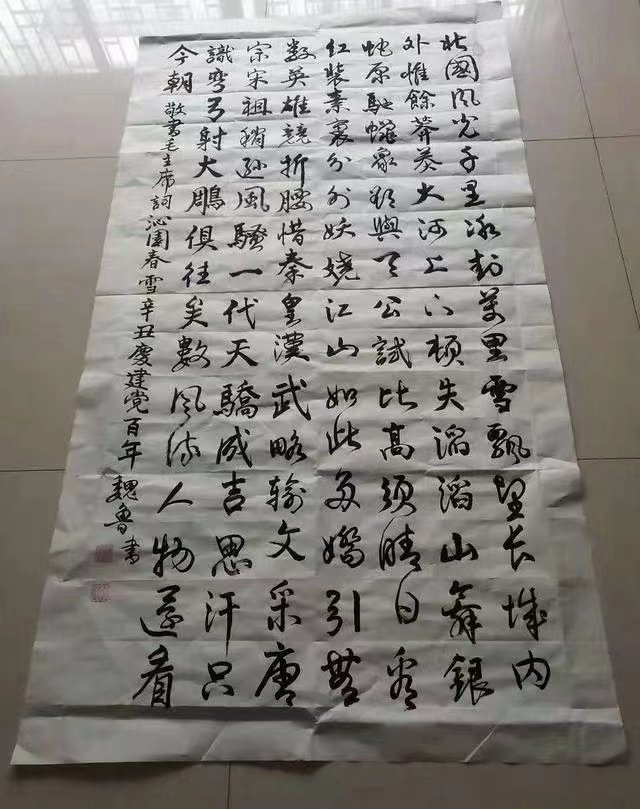 北國风光千里冰封萬里雪飄望长城内
外惟餘莽莽大河上下頓失滔滔山舞銀
蛇原馳蠟象欲與天公試比高须晴日看
红装素裹分外妖嬈江山如此多嬌引無
数英雄競折腰惜秦皇漢武略输文采唐
宗宋祖稍遜風騷一代天驕成吉思汗只
識彎弓射大鵰俱往矣數风流人物還看
今朝 敬書毛主席詞沁園春雪辛丑慶建党百年 魏魯書